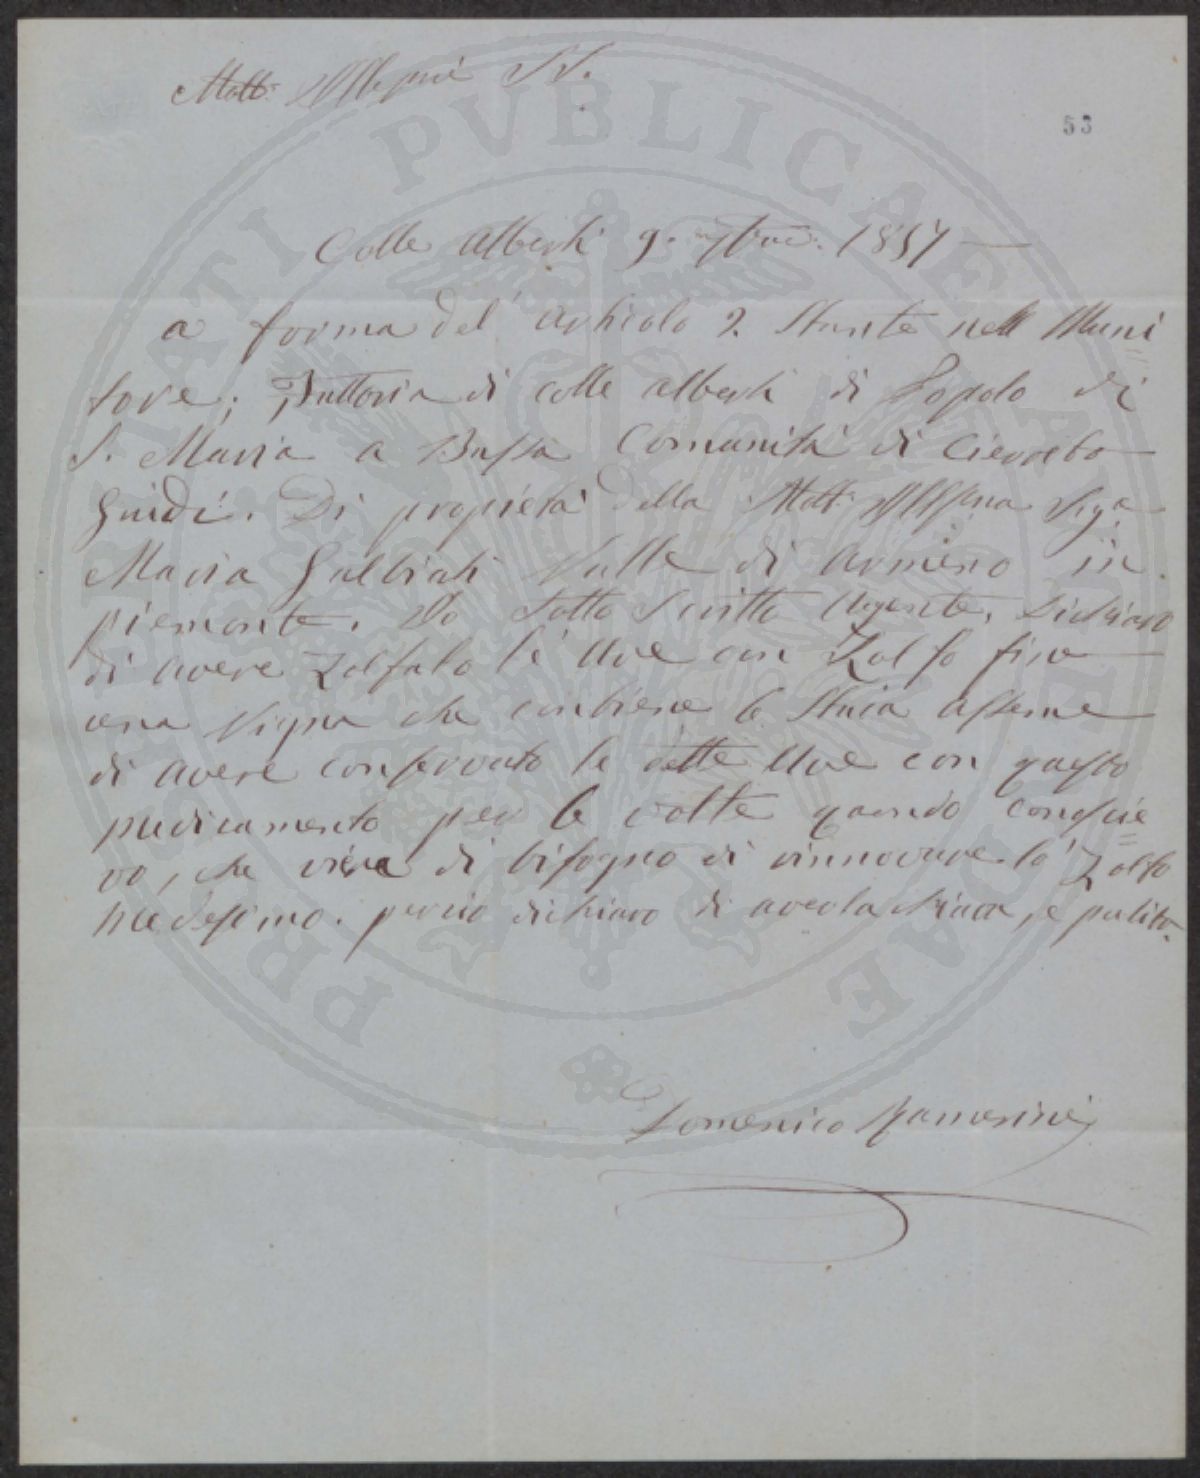 Molt: Illmi SS.
53
Colle Alberti 9. 7bre. 1857
a forma del' articolo 2. Stante nell Muni
tore; Fattoria di colle alberti di Popolo di
S. Maria a Bassa Comunita di Cierreto
Guidi. Di proprietà della Molt: Illma Siga
Maria Galbiati Valle di Armeno in
piemonte. Io Sotto Scritto Agente, Dichiaro
di avere Zolfato le Uve con Zolfo fino
una Vigna che contiene 6 Staia assieme
di avere conservato le dette Uve con questo
medicamento per 6 volte quando conoscie
vo, che viera di bisogno di rinnovare lo Zolfo
medesimo. perciò dichiaro di averla chiara, e pulita.
Domenico Ramerini
PRIVATI PVBLICAE